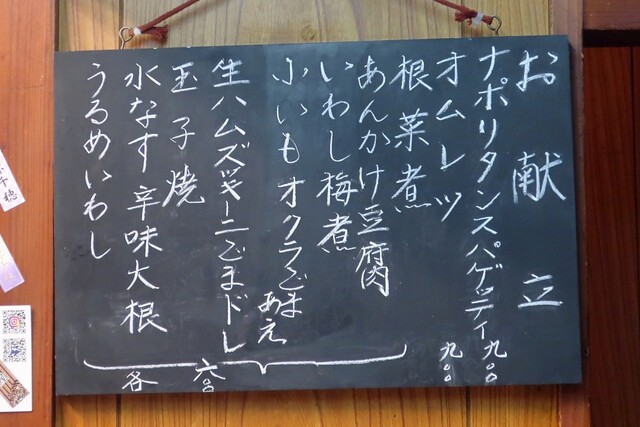 お献立
ナポリタンスパゲッティ 九〇〇
オムレツ 九〇〇
根菜煮
あんかけ豆腐
いわし梅煮
小いもオクラごまあえ
生ハムズッキーニごまドレ
玉子焼
水なす 辛味大根
うるめいわし
各 六〇〇
千穂